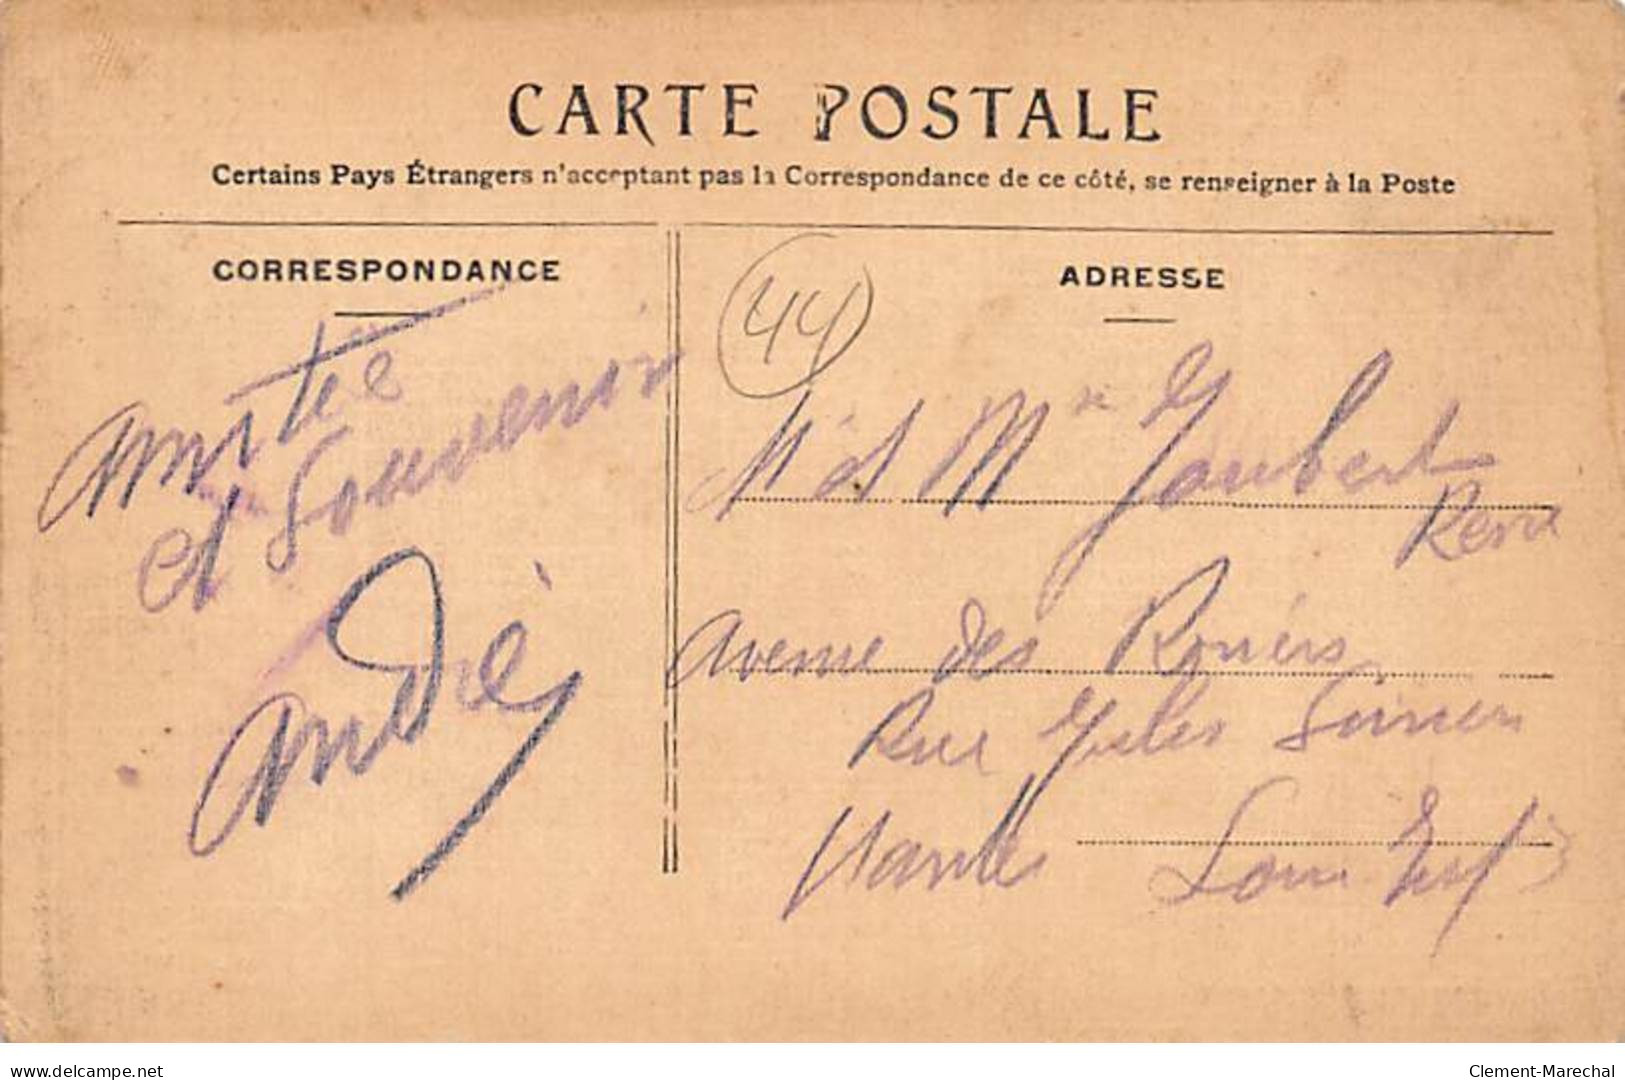 CARTE POSTALE
Certains Pays Étrangers n'acceptant pas la Correspondance de ce côté, se renseigner à la Poste
CORRESPONDANCE
Amitié
et Souvenir
André
ADRESSE
44
M et Me Joubert
René
Avenue des Rosiers
Rue Jules Simon
Nantes Loire Inf
delcampe.net
Clement-Marechal